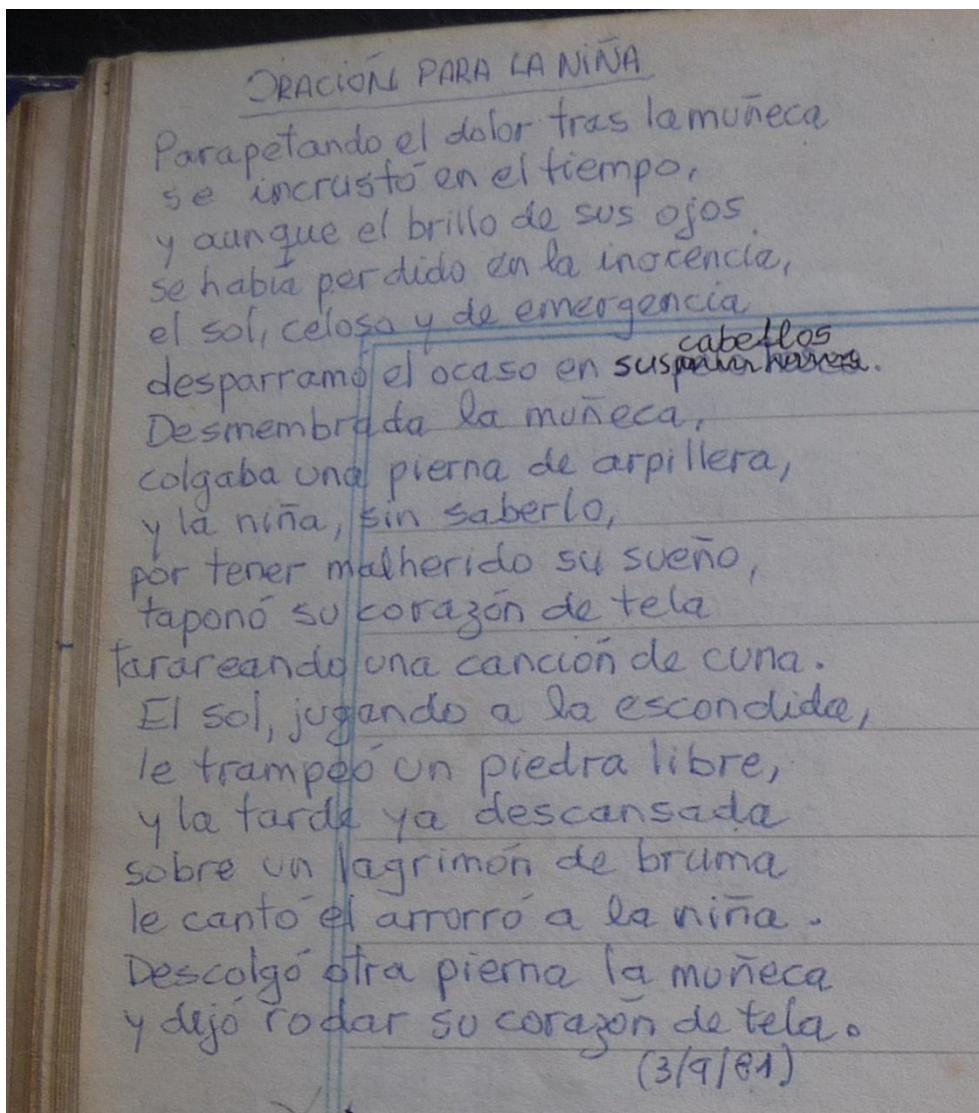 ORACIÓN PARA LA NIÑA
Parapetando el dolor tras la muñeca
se incrustó en el tiempo,
y aunque el brillo de sus ojos
se había perdido en la inocencia,
el sol, celoso y de emergencia
desparramó el ocaso en sus cabellos.
Desmembrada la muñeca,
colgaba una pierna de arpillera,
y la niña, sin saberlo,
por tener malherido su sueño,
taponó su corazón de tela
tarareando una canción de cuna.
El sol, jugando a la escondida,
le trampeó un piedra libre,
y la tarde ya descansada
sobre un lagrimón de bruma
le cantó el arrorró a la niña.
Descolgó otra pierna la muñeca
y dejó rodar su corazón de tela.
(3/9/81)